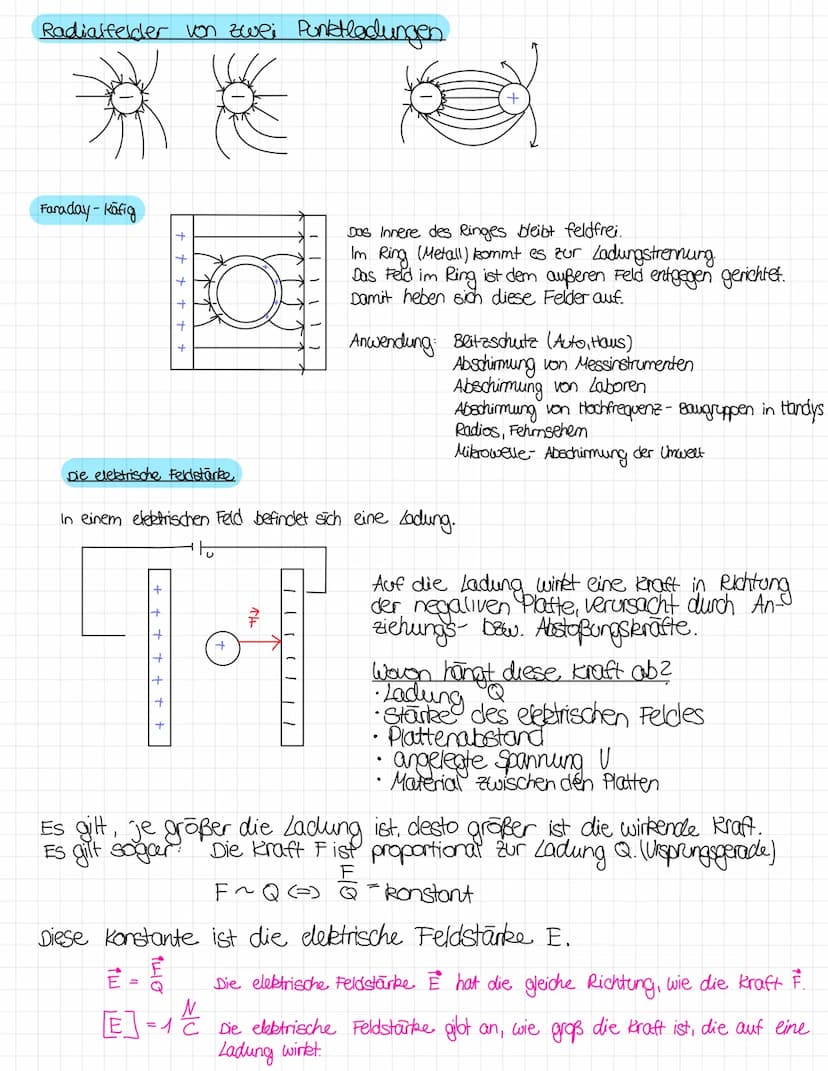 Radialfelder von zwei Punktladungen
- - - +
Faraday-Käfig
Das Innere des Ringes bleibt feldfrei.
Im Ring (Metall) kommt es zur Ladungstrennung
Das Feld im Ring ist dem äußeren Feld entgegen gerichtet.
Damit heben sich diese Felder auf.
Anwendung: Blitzschutz (Auto, Haus)
Abschirmung von Messinstrumenten
Abschirmung von Laboren
Abschirmung von Hochfrequenz-Baugruppen in Handys
Radios, Fehrnsehern
Mikrowelle- Abschirmung der Umwelt
Die elektrische Feldstärke
In einem elektrischen Feld befindet sich eine Ladung.
U
F
+
Auf die Ladung wirkt eine Kraft in Richtung
der negativen Platte, verursacht durch An-
ziehungs- bzw. Abstoßungskräfte.
Wovon hängt diese Kraft ab?
· Ladung Q
· Stärke des elektrischen Feldes
· Plattenabstand
· angelegte Spannung U
· Material zwischen den Platten
Es gilt, je größer die Ladung ist, desto größer ist die wirkende Kraft.
Es gilt sogar: Die Kraft F ist proportional zur Ladung Q. (Ursprungsgerade)
F ~ Q <=> F/Q = konstant
Diese Konstante ist die elektrische Feldstärke E.
E⃗ = F⃗/Q Die elektrische Feldstärke E⃗ hat die gleiche Richtung, wie die Kraft F⃗.
[E] = 1 N/C Die elektrische Feldstärke gibt an, wie groß die Kraft ist, die auf eine
Ladung wirkt.